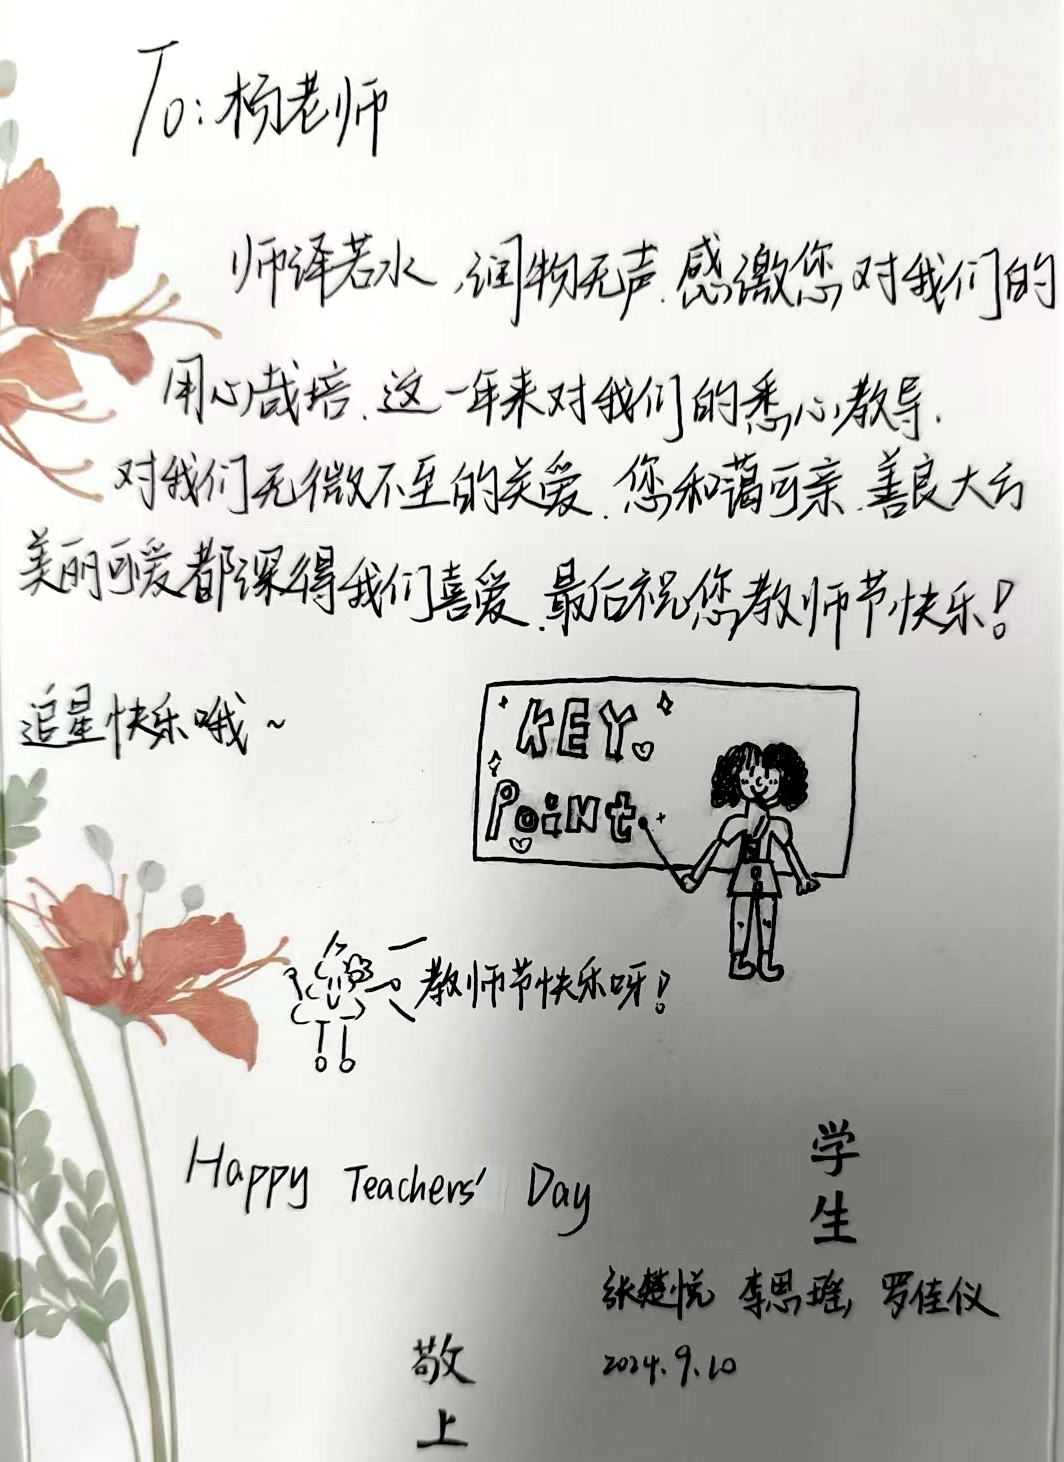 To: 杨老师
师泽若水,润物无声.感激您对我们的
用心哉培.这一年来对我们的悉心教导.
对我们无微不至的关爱.您和蔼可亲.善良大方
美丽可爱都深得我们喜爱.最后祝您教师节快乐!
追星快乐哦~
KEY
Point
教师节快乐呀!
Happy Teachers' Day
学生
张楚悦 李思瑶 罗佳仪
2024.9.10
敬上